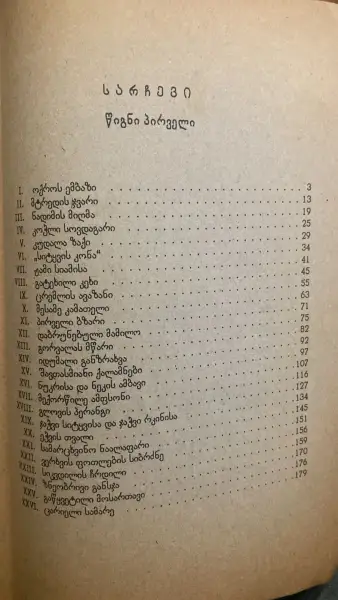 სარჩევი
წიგნი პირველი
I. ოქროს ემბაზი . . . . . . . . 3
II. მტრედის ჯვარი . . . . . . . . 13
III. ნადიმის მიღმა . . . . . . . . 19
IV. კოჭლი სოვდაგარი . . . . . . . . 25
V. კუდალა ზაქი . . . . . . . . 29
VI. „სიტყვის კონა“ . . . . . . . . 34
VII. ჟამი სიამისა . . . . . . . . 41
VIII. გატეხილი კეხი . . . . . . . . 45
IX. ცრემლის ავაზანი . . . . . . . . 55
X. მესამე კამათელი . . . . . . . . 63
XI. პირველი ბზარი . . . . . . . . 71
XII. დაბრუნებული მამილო . . . . . . . . 75
XIII. გორვალას მწარი . . . . . . . . 82
XIV. იდუმალი განზრახვა . . . . . . . . 92
XV. შავთასმიანი ქალამნები . . . . . . . . 97
XVI. ნუკრისა და ნეკის ამბავი . . . . . . . . 107
XVII. მექორწილე ამფსონი . . . . . . . . 116
XVIII. გლოვის პერანგი . . . . . . . . 127
XIX. ჯაჭვი სიტყვისა და ჯაჭვი რკინისა . . . . . . . . 134
XX. ეჭვის თვალი . . . . . . . . 145
XXI. სამარცხვინო ნაალაფარი . . . . . . . . 151
XXII. ვერხვის ფოთლების სიბრძნე . . . . . . . . 156
XXIII. სიკვდილის ჩრდილი . . . . . . . . 159
XXIV. ზნეობრივი განსჯა . . . . . . . . 170
XXV. გაწყვეტილი მოსართავი . . . . . . . . 176
XXVI. ცარიელი სამარე . . . . . . . . 179